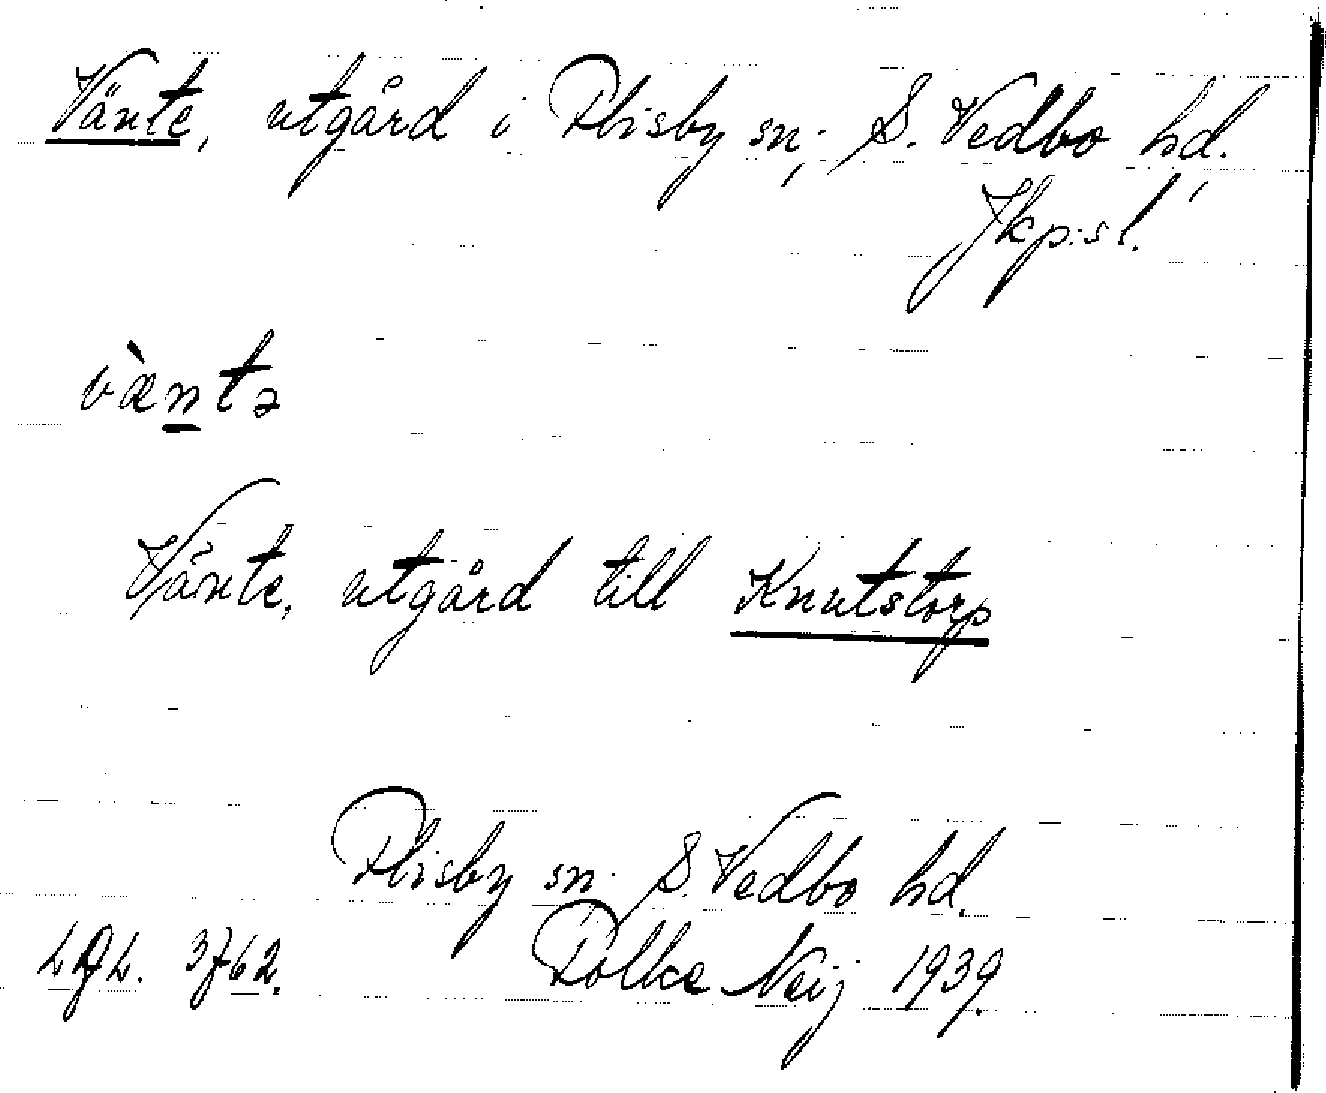 Vänte, utgård i Flisby sn, S. Vedbo hd.,
Jkp:s l.
væ̀ntə
Vänte, utgård till Knutstorp
Flisby sn. S. Vedbo hd.
Folke Neij 1939.
3762.